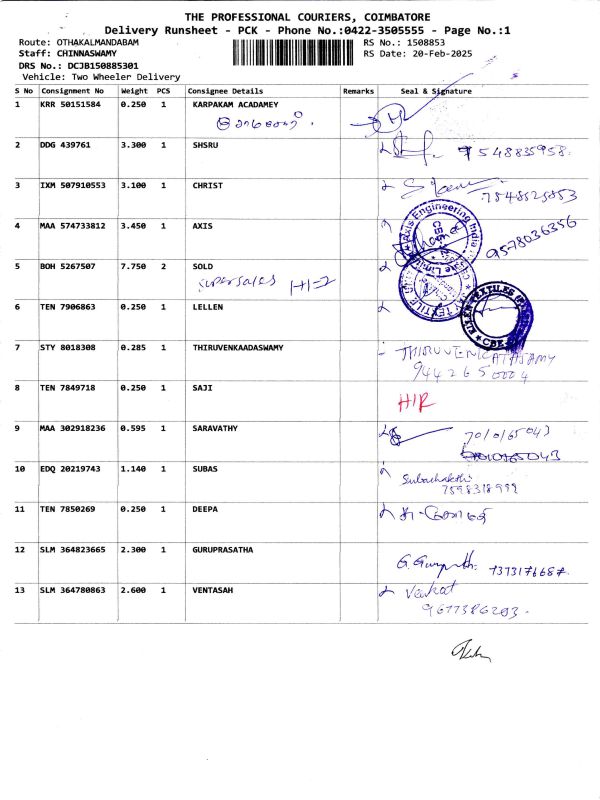 THE PROFESSIONAL COURIERS, COIMBATORE
Delivery Runsheet - PCK - Phone No.:0422-3505555 - Page No.:1
Route: OTHAKALMANDABAM RS No.: 1508853
Staff: CHINNASWAMY RS Date: 20-Feb-2025
DRS No.: DCJB150885301
Vehicle: Two Wheeler Delivery
S No Consignment No Weight PCS Consignee Details Remarks Seal & Signature
1 KRR 50151584 0.250 1 KARPAKAM ACADAMEY
2 DDG 439761 3.300 1 SHSRU 9548835958
3 IXM 507910553 3.100 1 CHRIST 7548525853
4 MAA 574733812 3.450 1 AXIS 9578036356
Axis Engineering India
5 BOH 5267507 7.750 2 SOLD
Supersales H-2
6 TEN 7906863 0.250 1 LELLEN
7 STY 8018308 0.285 1 THIRUVENKAADASWAMY THIRUVENKATASAMY
9442650004
8 TEN 7849718 0.250 1 SAJI H/R
9 MAA 302918236 0.595 1 SARAVATHY 7010165043
10 EDQ 20219743 1.140 1 SUBAS
7598318999
11 TEN 7850269 0.250 1 DEEPA
12 SLM 364823665 2.300 1 GURUPRASATHA
G. Guruprath. 7373176687
13 SLM 364780863 2.600 1 VENTASAH Venkat
9677386203